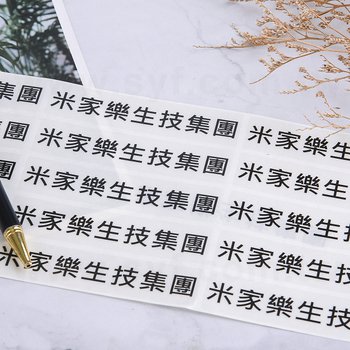 集團 米家樂生技集團 米家樂
團 米家樂生技集團 米家樂生
團 米家樂生技集團 米家樂生
米家樂生技集團 米家樂生技
米家樂生技集團 米家樂生技